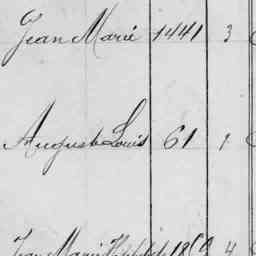 Jean Marie 1441 3
Auguste Louis 61 1
Jean Marie 4